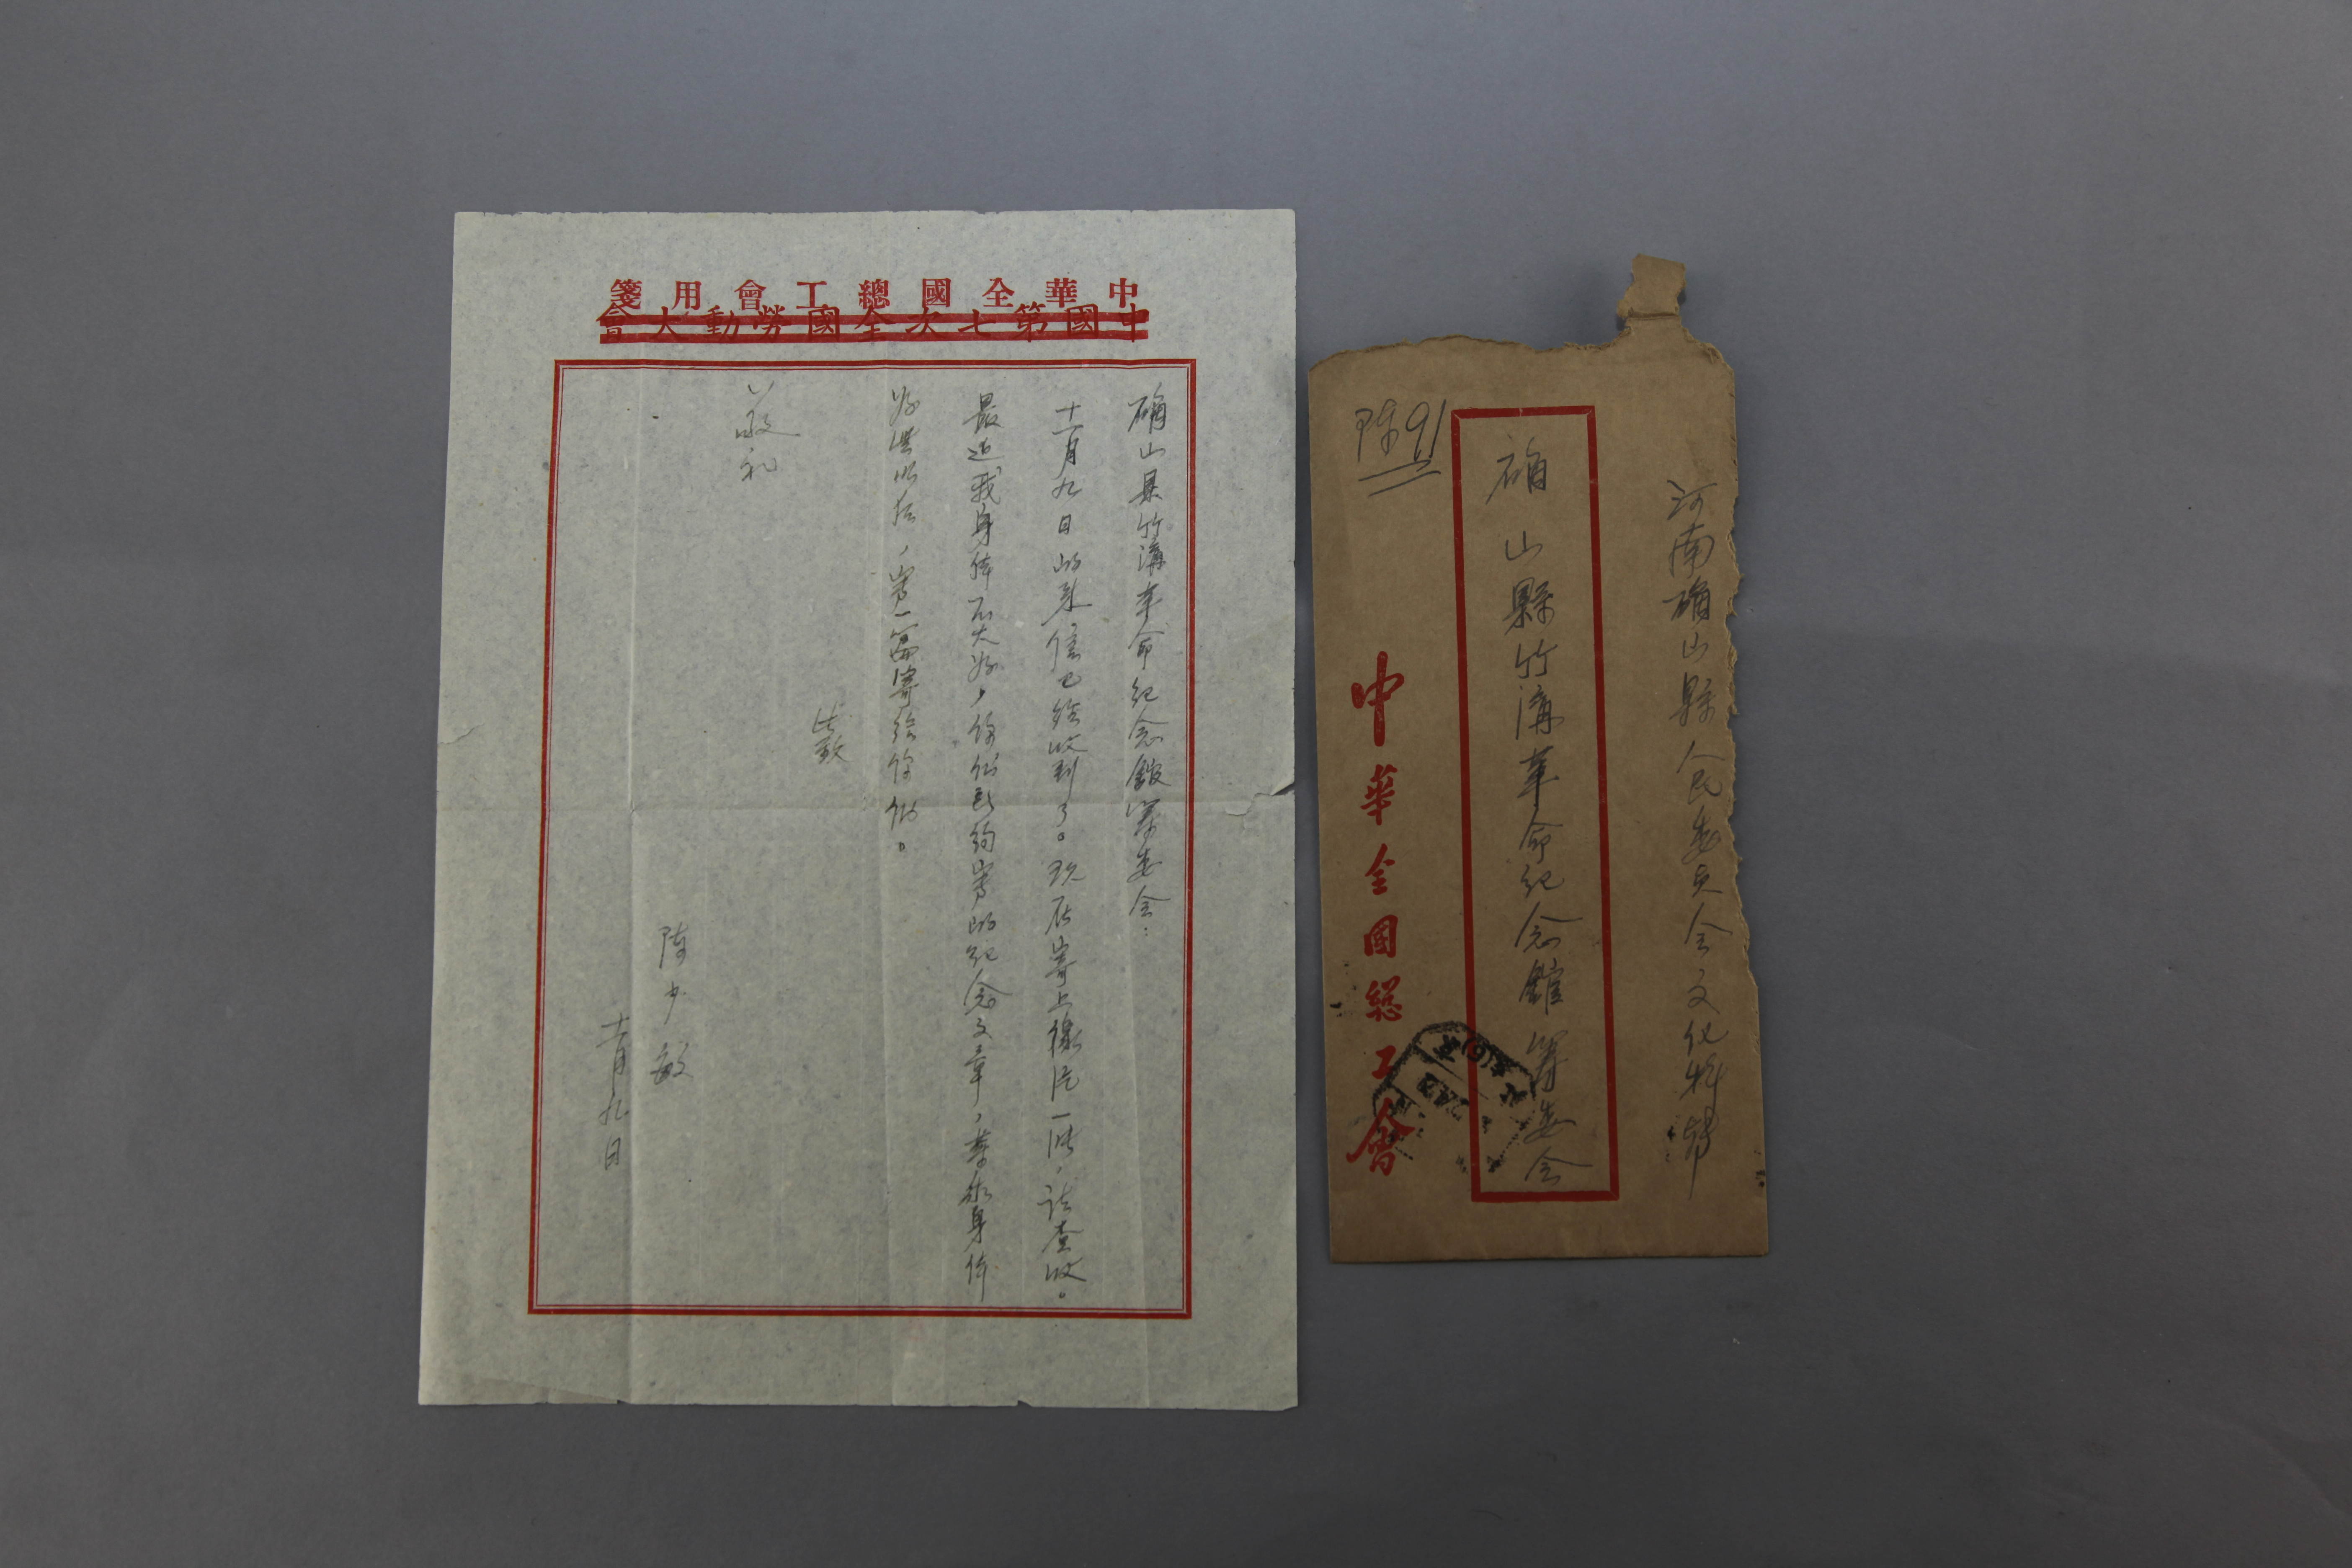 中華全國總工會用箋
中國第七次全國勞動大會
确山县竹溝革命纪念館筹委会：
十一月九日的来信已经收到了。现在寄上像片一张，请查收。
最近我身体不大好，你们要约写的纪念文章，等我身体
好些以后，写一篇寄给你们。
此致
敬礼
陈少敏
十一月九日
河南确山縣人民委員会文化科轉
确山縣竹溝革命纪念館筹委会
陈91
中華全國總工會